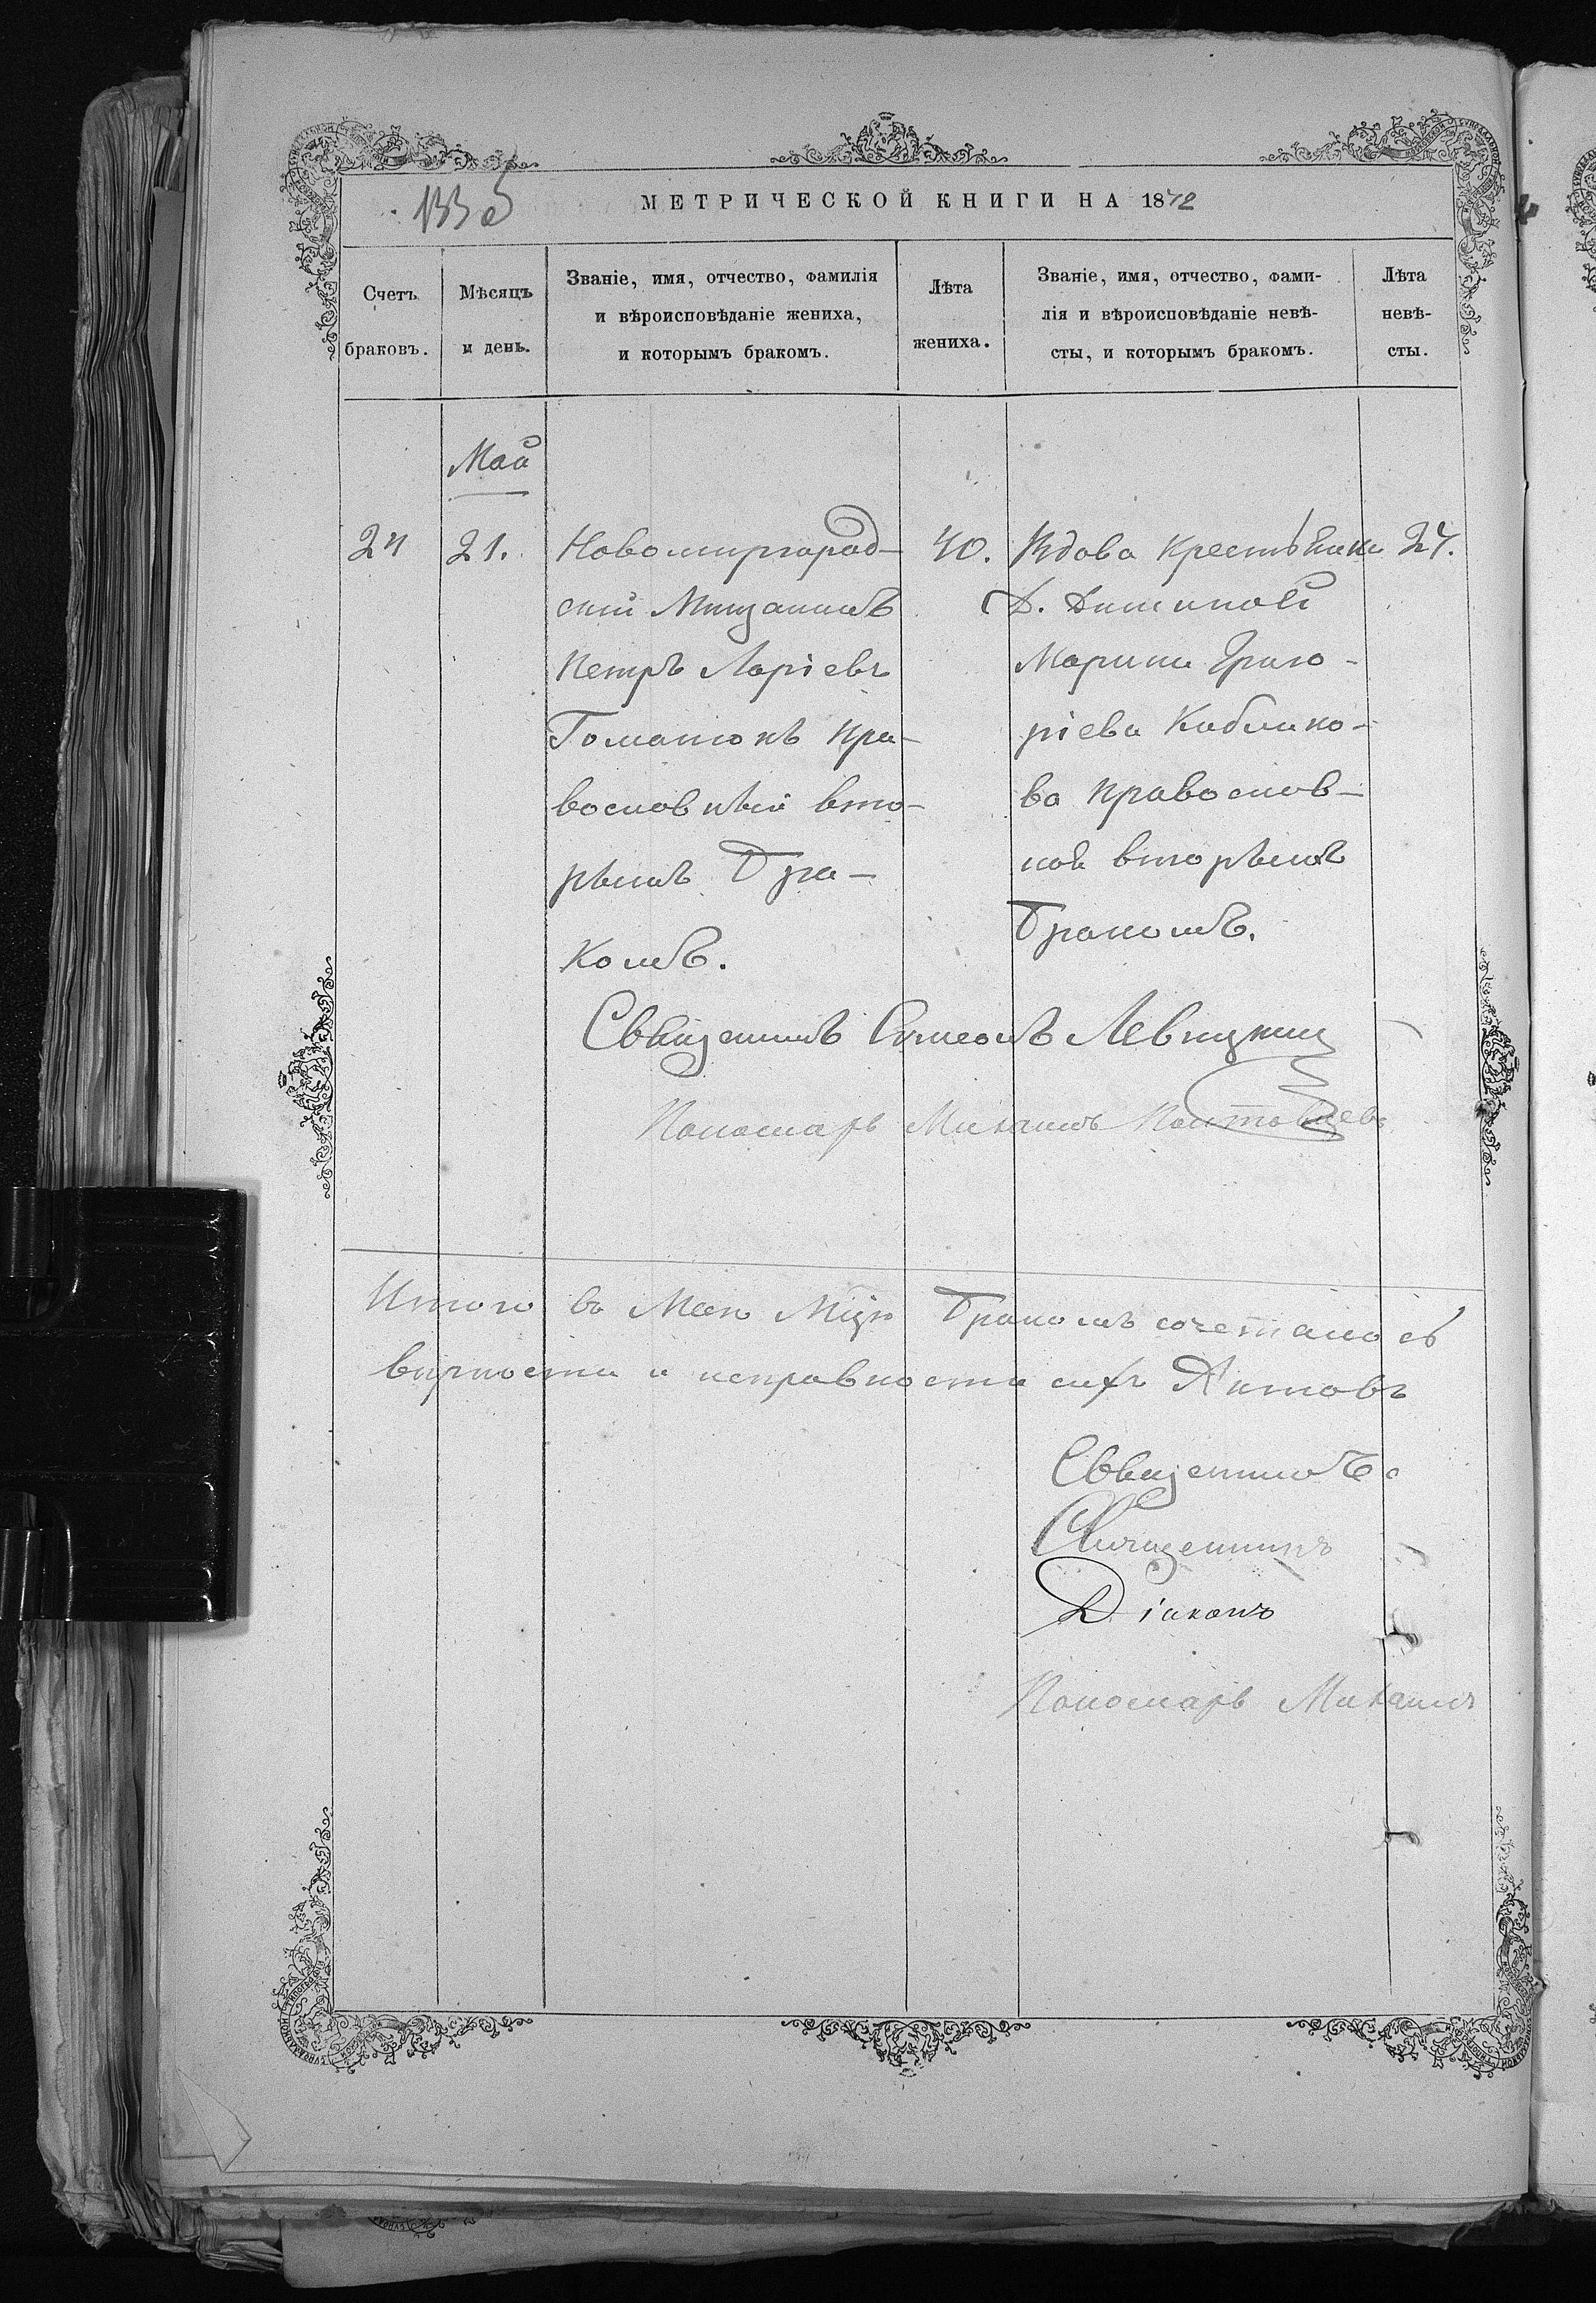 133 об
МЕТРИЧЕСКОЙ КНИГИ НА 1872
Счетъ браковъ.
Мѣсяцъ и день.
Званіе, имя, отчество, фамилія
и вѣроисповѣданіе жениха,
и которымъ бракомъ.
Лѣта
жениха.
Званіе, имя, отчество, фами-
лія и вѣроисповѣданіе невѣ-
сты, и которымъ бракомъ.
Лѣта
невѣ-
сты.
Май
21.
Новомиргород-
скій Мищанинъ
Петръ Ларіевъ
Гоманюкъ пра-
вославный вто-
рымъ Бра-
комъ.
40.
Вдова крестьянка
Д.
Марина Григо-
ріева
ва православ-
ной вторымъ
Бракомъ.
Священникъ Симеонъ Левицкій
Пономарь Михаилъ
Итого въ Маѣ Мцѣ Бракомъ сочеталось
вирности и исправности сихъ Актовъ
Священникъ
Священникъ
Діаконъ
Пономарь Михаилъ